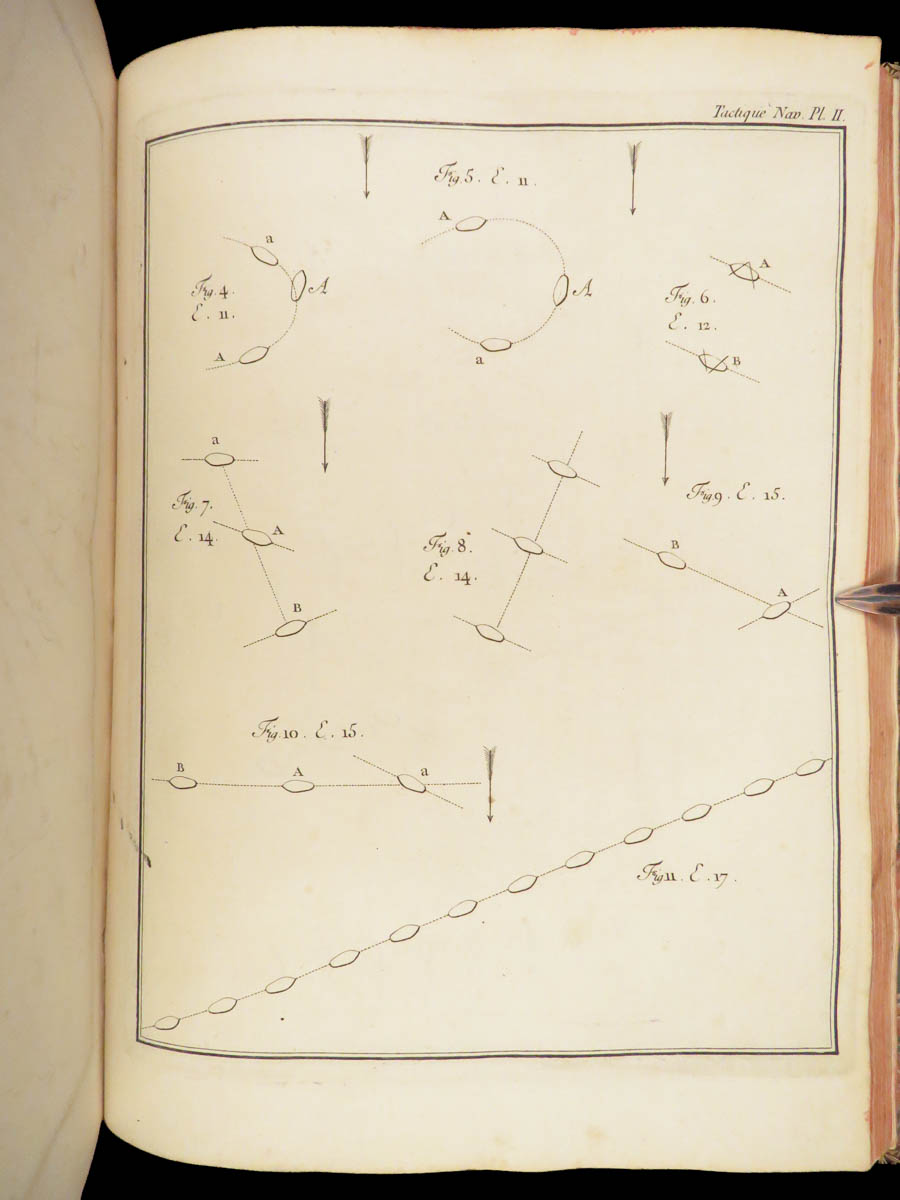 Tactique Nav. Pl. II.
Fig. 5. E. 11.
A
A
a
Fig. 4.
E. 11.
a
A
A
Fig. 6.
E. 12.
A
B
a
Fig. 7.
E. 14.
A
B
Fig. 8.
E. 14.
Fig. 9. E. 15.
B
A
Fig. 10. E. 15.
B
A
a
Fig 11. E. 17.